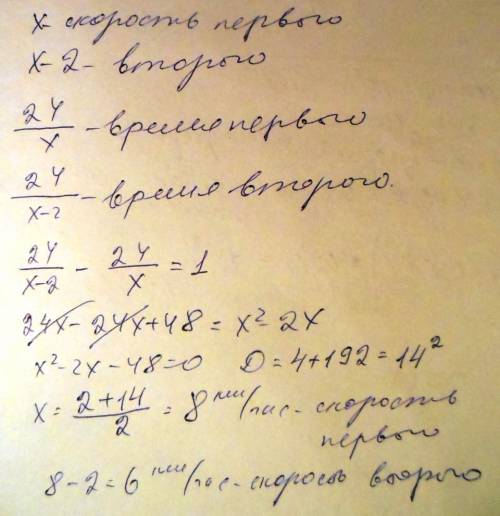 x - скорость первого
x - 2 - второго
24/x - время первого
24/x-2 - время второго.
24/x-2 - 24/x = 1
24x - 24x + 48 = x² - 2x
x² - 2x - 48 = 0 D = 4 + 192 = 14²
x = 2+14/2 = 8 км/час - скорость
первого
8 - 2 = 6 км/час - скорость второго